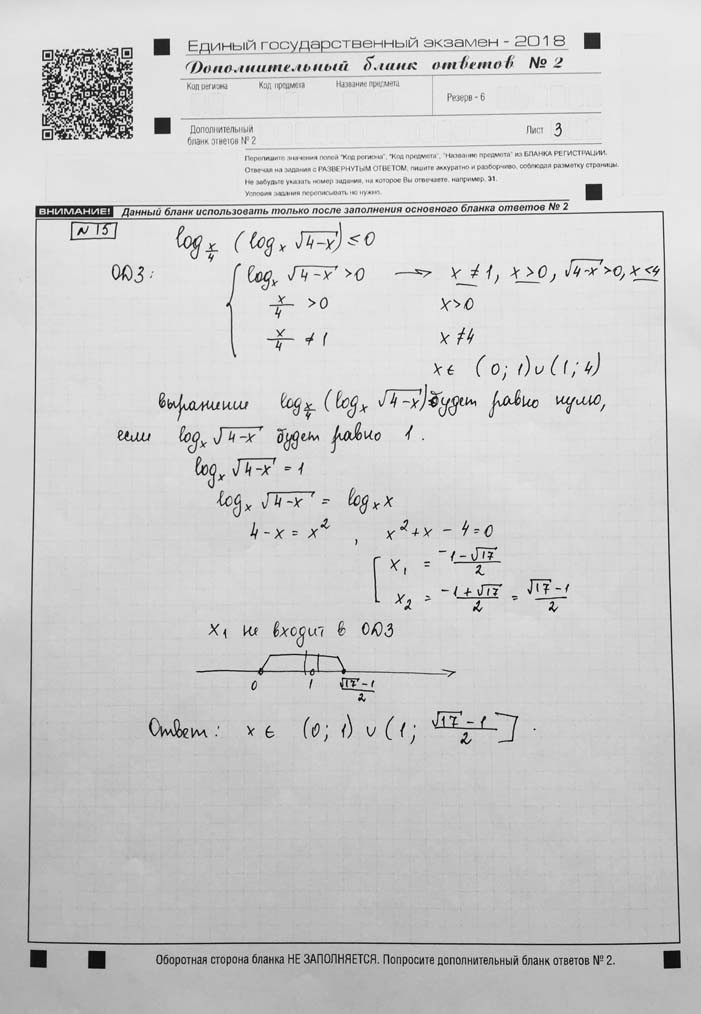 Единый государственный экзамен - 2018
Дополнительный бланк ответов № 2
Код региона Код предмета Название предмета
Резерв - 6
Дополнительный
бланк ответов № 2
Лист 3
Перепишите значения полей "Код региона", "Код предмета", "Название предмета" из БЛАНКА РЕГИСТРАЦИИ.
Отвечая на задания с РАЗВЕРНУТЫМ ОТВЕТОМ, пишите аккуратно и разборчиво, соблюдая разметку страницы.
Не забудьте указать номер задания, на которое Вы отвечаете, например, 31.
Условия задания переписывать не нужно.
ВНИМАНИЕ! Данный бланк использовать только после заполнения основного бланка ответов № 2
N 15 log_{x/4} (log_x √(4-x)) ≤ 0
ОДЗ: { log_x √(4-x) > 0 → x ≠ 1, x > 0, √(4-x) > 0, x < 4
x/4 > 0 x > 0
x/4 ≠ 1 x ≠ 4
x ∈ (0; 1) ∪ (1; 4)
выражение log_{x/4} (log_x √(4-x)) будет равно нулю,
если log_x √(4-x) будет равно 1.
log_x √(4-x) = 1
log_x √(4-x) = log_x x
4-x = x², x² + x - 4 = 0
[ x₁ = (-1-√17)/2
x₂ = (-1+√17)/2 = (√17-1)/2
x₁ не входит в ОДЗ
0 1 (√17-1)/2
Ответ: x ∈ (0; 1) ∪ (1; (√17-1)/2].
Оборотная сторона бланка НЕ ЗАПОЛНЯЕТСЯ. Попросите дополнительный бланк ответов № 2.